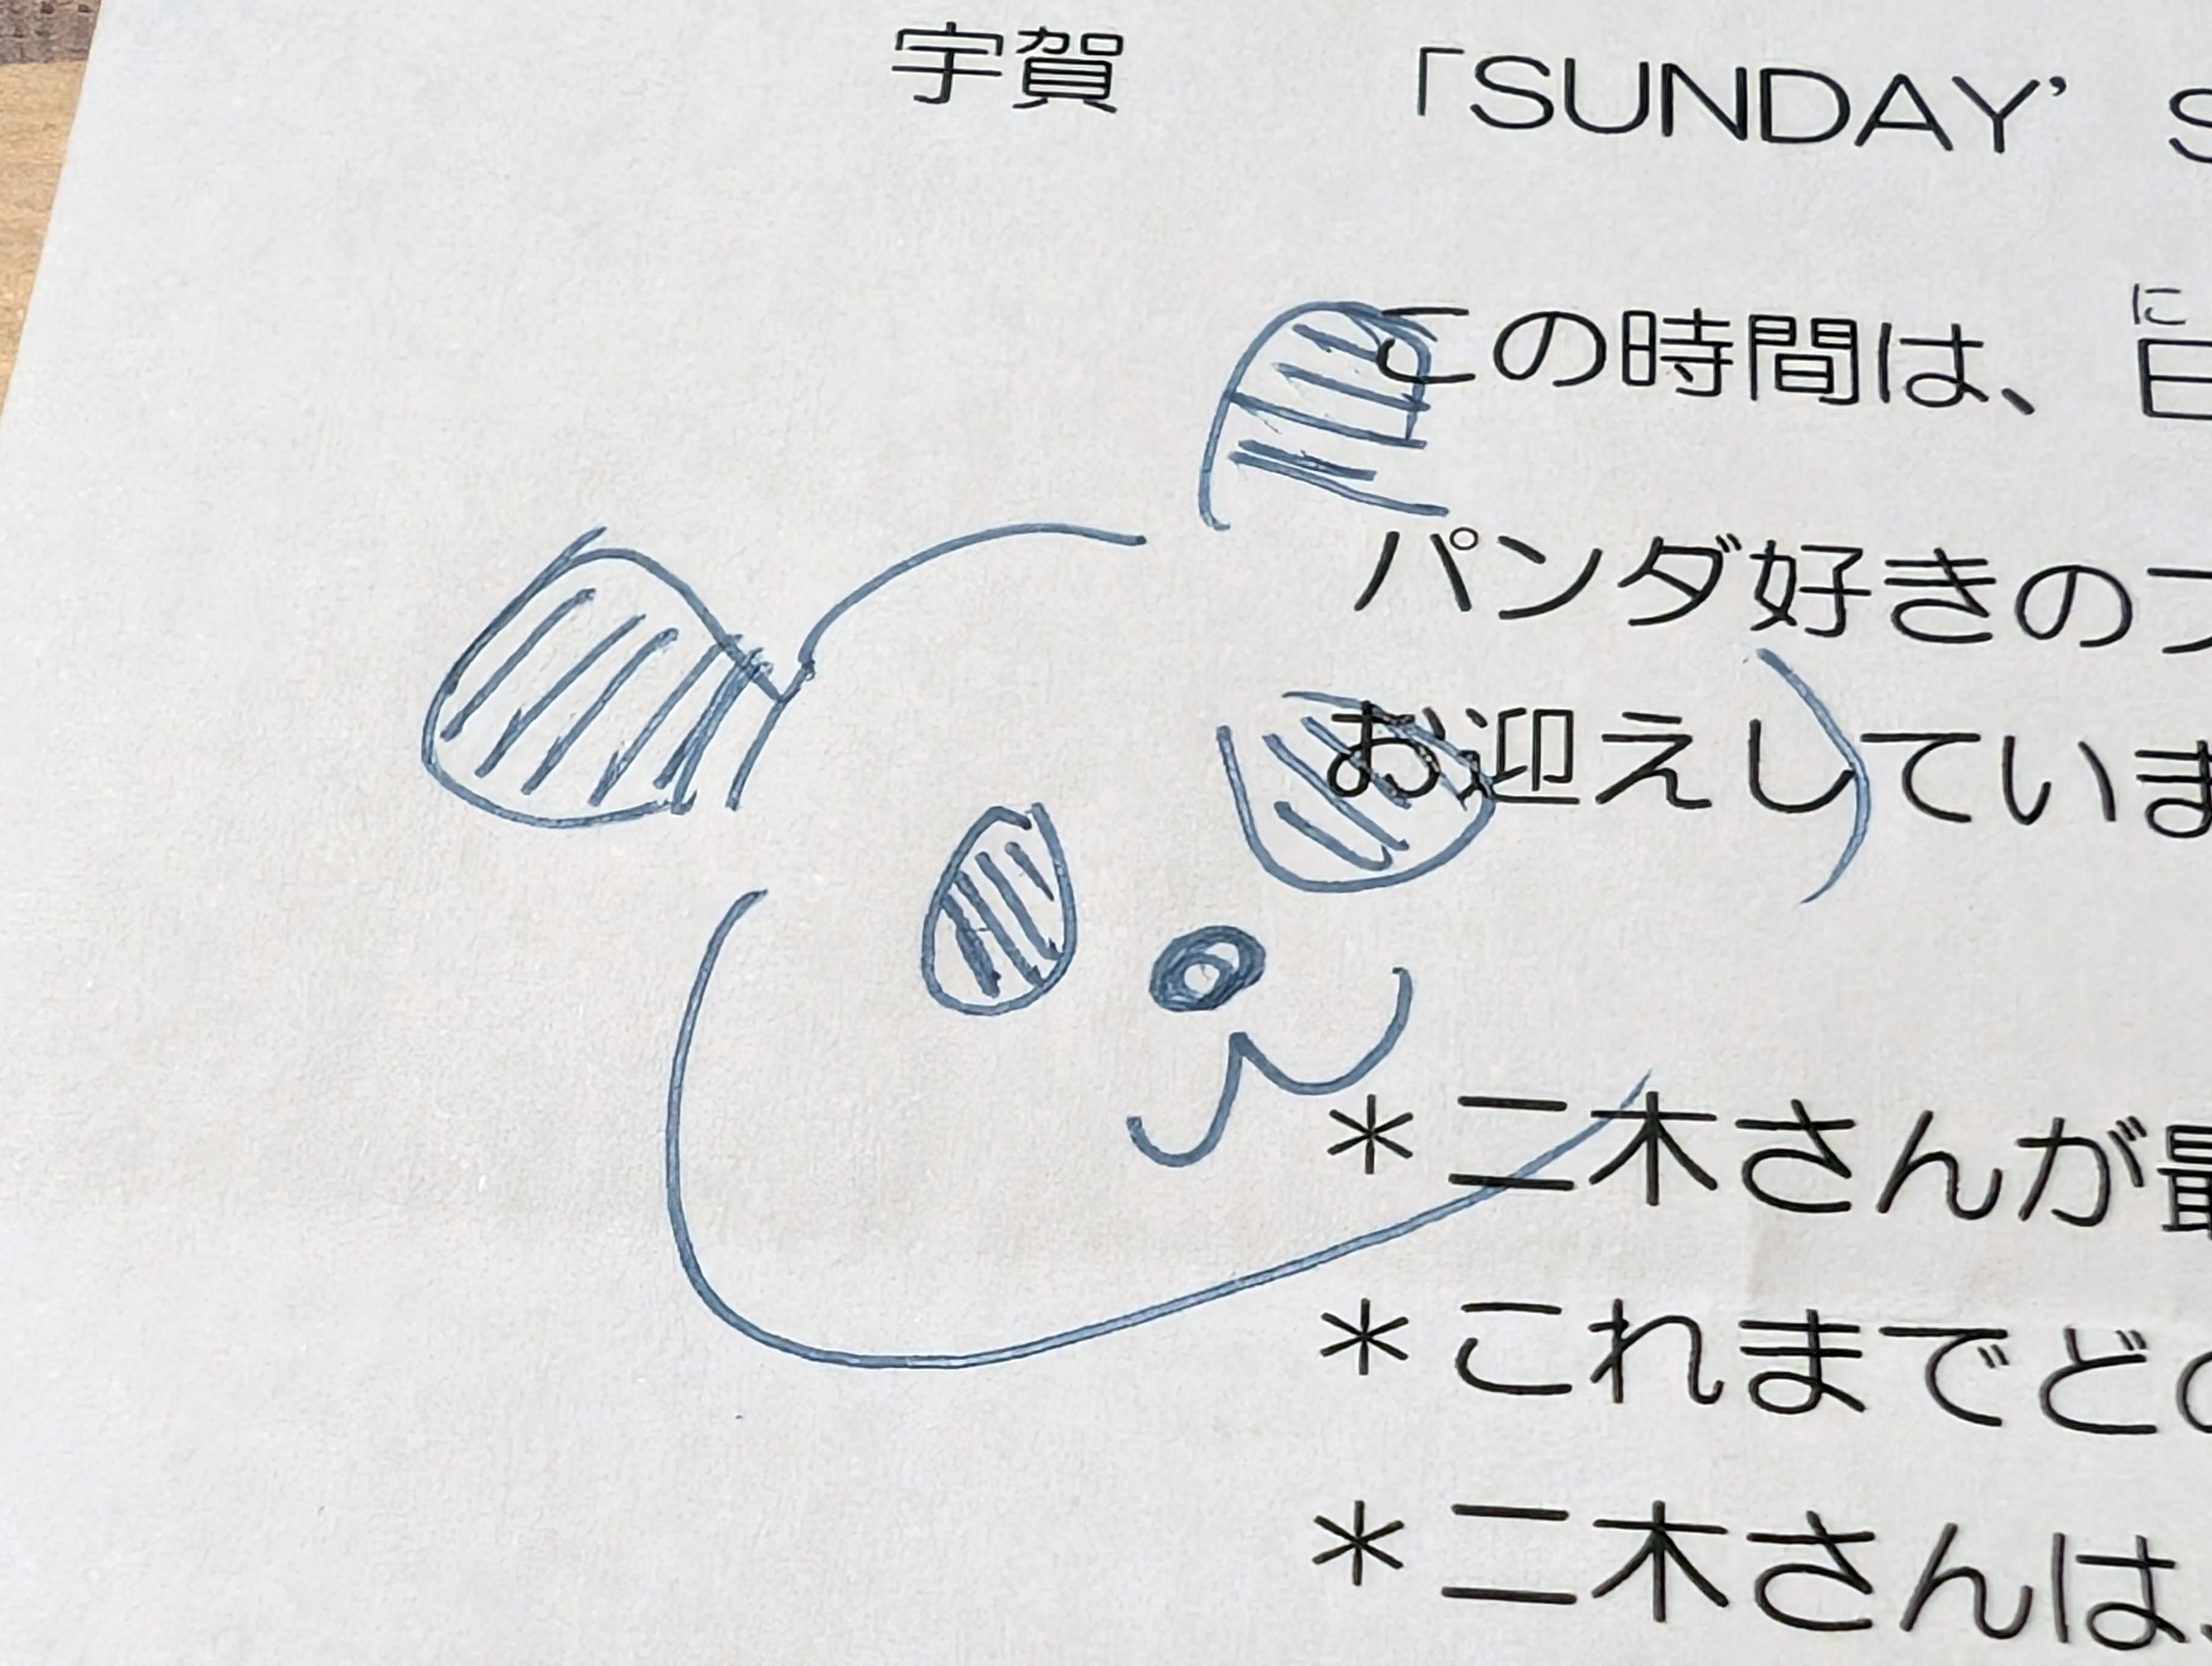 宇賀 「SUNDAY’ S
この時間は、
に
日
パンダ好きのフ
お迎えしていま
＊二木さんが最
＊これまでどの
＊二木さんは、